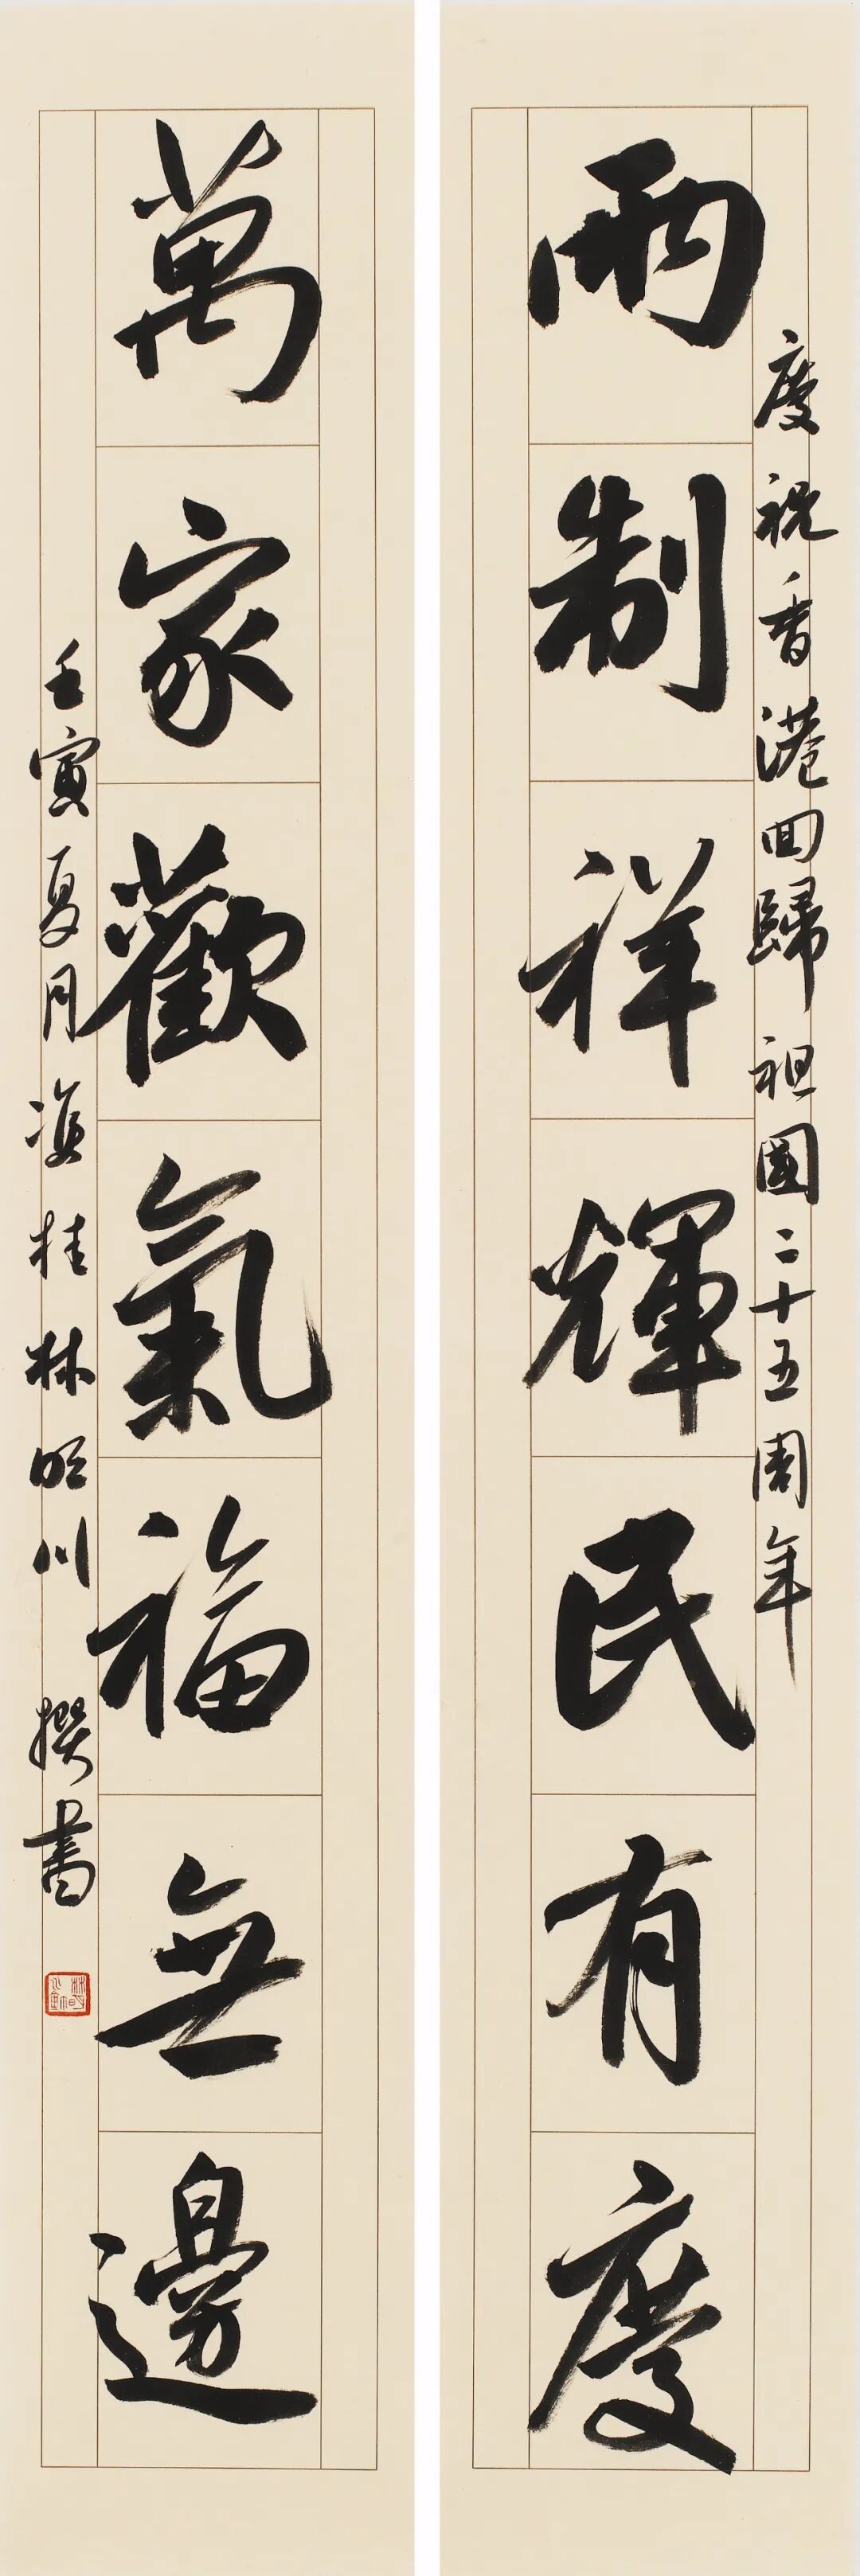 慶祝香港回歸祖國二十五周年
兩制祥輝民有慶
萬家歡氣福無邊
壬寅夏月 桂林 川 撰書